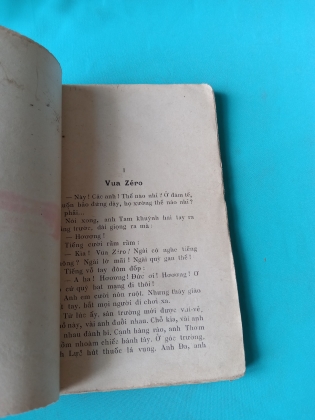 1
Vua Zéro
— Này! Các anh! Thế nào nhỉ? Ở đám tế,
hảo đứng dậy, họ xướng thế nào nhỉ?
phải...
Nói xong, anh Tam khuỳnh hai tay ra
trước, dài giọng ra mà:
— Hương!
Tiếng cười rầm rầm:
— Kìa! Vua Zéro! Ngài có ngáo tiếng
không? Ngài lờ mãi? Ngài quỵ gạo thế!
Tiếng vỗ tay đôm đốp:
— A ha! Hương! Đức ơi! Hương! Ở
có quỷ bạt mạng đi thôi!
Anh em cười nôn ruột. Nhưng thầy giáo
tay, bắt mọi người đi chơi xa.
Từ lúc ấy, sân trường mới được vui-vẻ.
này, vài anh đuổi nhau. Chỗ kia, vài anh
nhau đánh bi. Cạnh hàng rào, anh Thơm
nhoàm chiếc bánh tây. Ở góc trường,
Lập! hút thuốc lá vụng. Anh Đa, anh